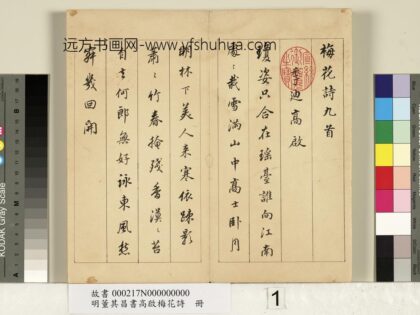 远方书画网-www.yfshuhua.com
梅花詩九首
季迪高啟
瓊姿只合在瑤臺誰向江南
處〻栽雪滿山中高士卧月
明林下美人来寒依疎影
蕭〻竹春掩殘香漠〻苔
自去何郎無好詠東風愁
寂幾回開
KODAK Gray Scale
故書 000217N000000000
明董其昌書高啟梅花詩 冊
1